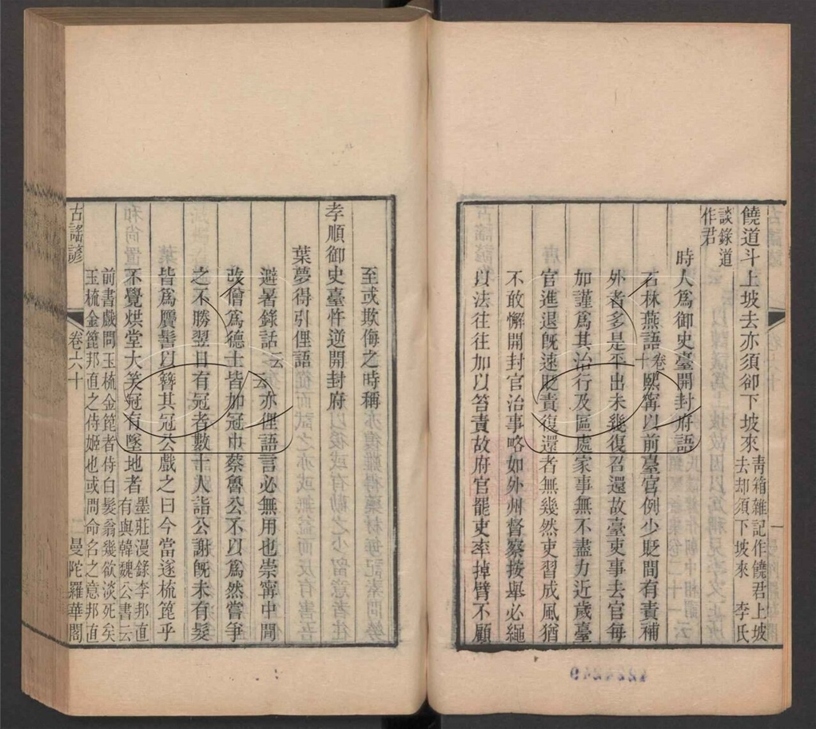 饒道斗上坡去亦須卻下坡來
青箱雜記作饒君上坡
去却須下坡來 李氏
談錄道
作君
時人爲御史臺開封府語
石林燕語
卷
十
熙寧以前臺官例少貶間有責補
外者多是平出未幾復召還故臺吏事去官每
加謹爲其治行及區處家事無不盡力近歲臺
官進退旣速貶責復還者無幾然吏習成風猶
不敢懈開封官治事略如外州督察按舉必繩
以法往往加以笞責故府官罷吏率掉臂不顧
至或欺侮之時稱
孝順御史臺忤逆開封府
葉夢得引俚語
避暑錄話
云
云
亦俚語言必無用也崇寧中間
改僧爲德士皆加冠巾蔡魯公不以爲然嘗爭
之不勝翌日有冠者數十人詣公謝旣未有髮
皆爲贋髻以簪其冠公戲之曰今當遂梳篦乎
不覺烘堂大笑冠有墜地者
墨莊漫錄李邦直
有與韓魏公書云
前書戲問玉梳金篦者侍白髮翁幾欲淡死矣
玉梳金篦邦直之侍姬也或問命名之意邦直
古謠諺
卷六十
二
曼陀羅華閣